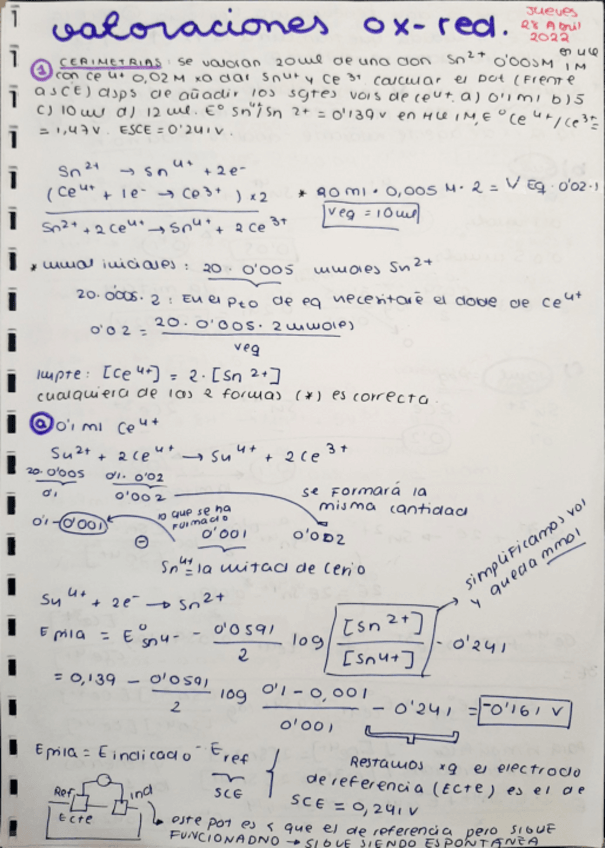 valoraciones ox-red.
Jueves
28 Abril
2022
① CERIMETRIAS: se valoran 20 ml de una don Sn²⁺ 0'005M en HCl 1M
con Ce⁴⁺ 0,02 M xa dar Sn⁴⁺ y Ce³⁺ calcular el pot (frente
a SCE) dsps de añadir los sgtes vols de Ce⁴⁺. a) 0'1 ml b) 5
c) 10 ml d) 12 ml. E° Sn⁴⁺/Sn²⁺ = 0'139 v en HCl 1M, E° Ce⁴⁺/Ce³⁺ =
= 1,47 v. ESCE = 0'241 v.
Sn²⁺ → Sn⁴⁺ + 2e⁻
(Ce⁴⁺ + 1e⁻ → Ce³⁺) × 2
* 20 ml · 0,005 M · 2 = V Eq · 0'02 · 1
Sn²⁺ + 2Ce⁴⁺ → Sn⁴⁺ + 2Ce³⁺
Veq = 10 ml
* mmol iniciales: 20 · 0'005 mmoles Sn²⁺
20 · 0'005 · 2 : En el pto de eq necesitaré el doble de Ce⁴⁺
0'02 = 20 · 0'005 · 2 mmoles / veq
Impte: [Ce⁴⁺] = 2 · [Sn²⁺]
cualquiera de las 2 formas (*) es correcta.
ⓐ 0'1 ml Ce⁴⁺
Sn²⁺ + 2Ce⁴⁺ → Sn⁴⁺ + 2Ce³⁺
20 · 0'005 0'1 · 0'02
0'1 0'002
se formará la
misma cantidad
0'1 - 0'001
lo que se ha
formado
0'001 0'002
Sn⁴⁺ = la mitad de cerio
Sn⁴⁺ + 2e⁻ → Sn²⁺
simplificamos vol
y queda mmol
Epila = E°sn⁴⁻ 0'0591/2 log [Sn²⁺]/[Sn⁴⁺] - 0'241
= 0,139 - 0'0591/2 log 0'1 - 0,001/0'001 - 0'241 = -0'161 v
Epila = Eindicado - Eref
SCE
Restamos xq el electrodo
de referencia (Ecte) es el de
SCE = 0,241 v
Ref ind
Ecte
este pot es < que el de referencia pero SIGUE
FUNCIONADNO → SIGUE SIENDO ESPONTÁNEA